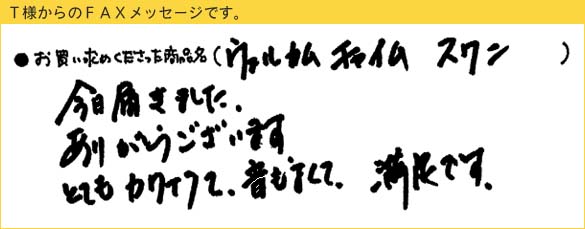 T様からのFAXメッセージです。
●お買い求めくださった商品名(ウェルカムチャイム スワン )
今日届きました。
ありがとうございます
とてもカワイくて、音もよくて、満足です。